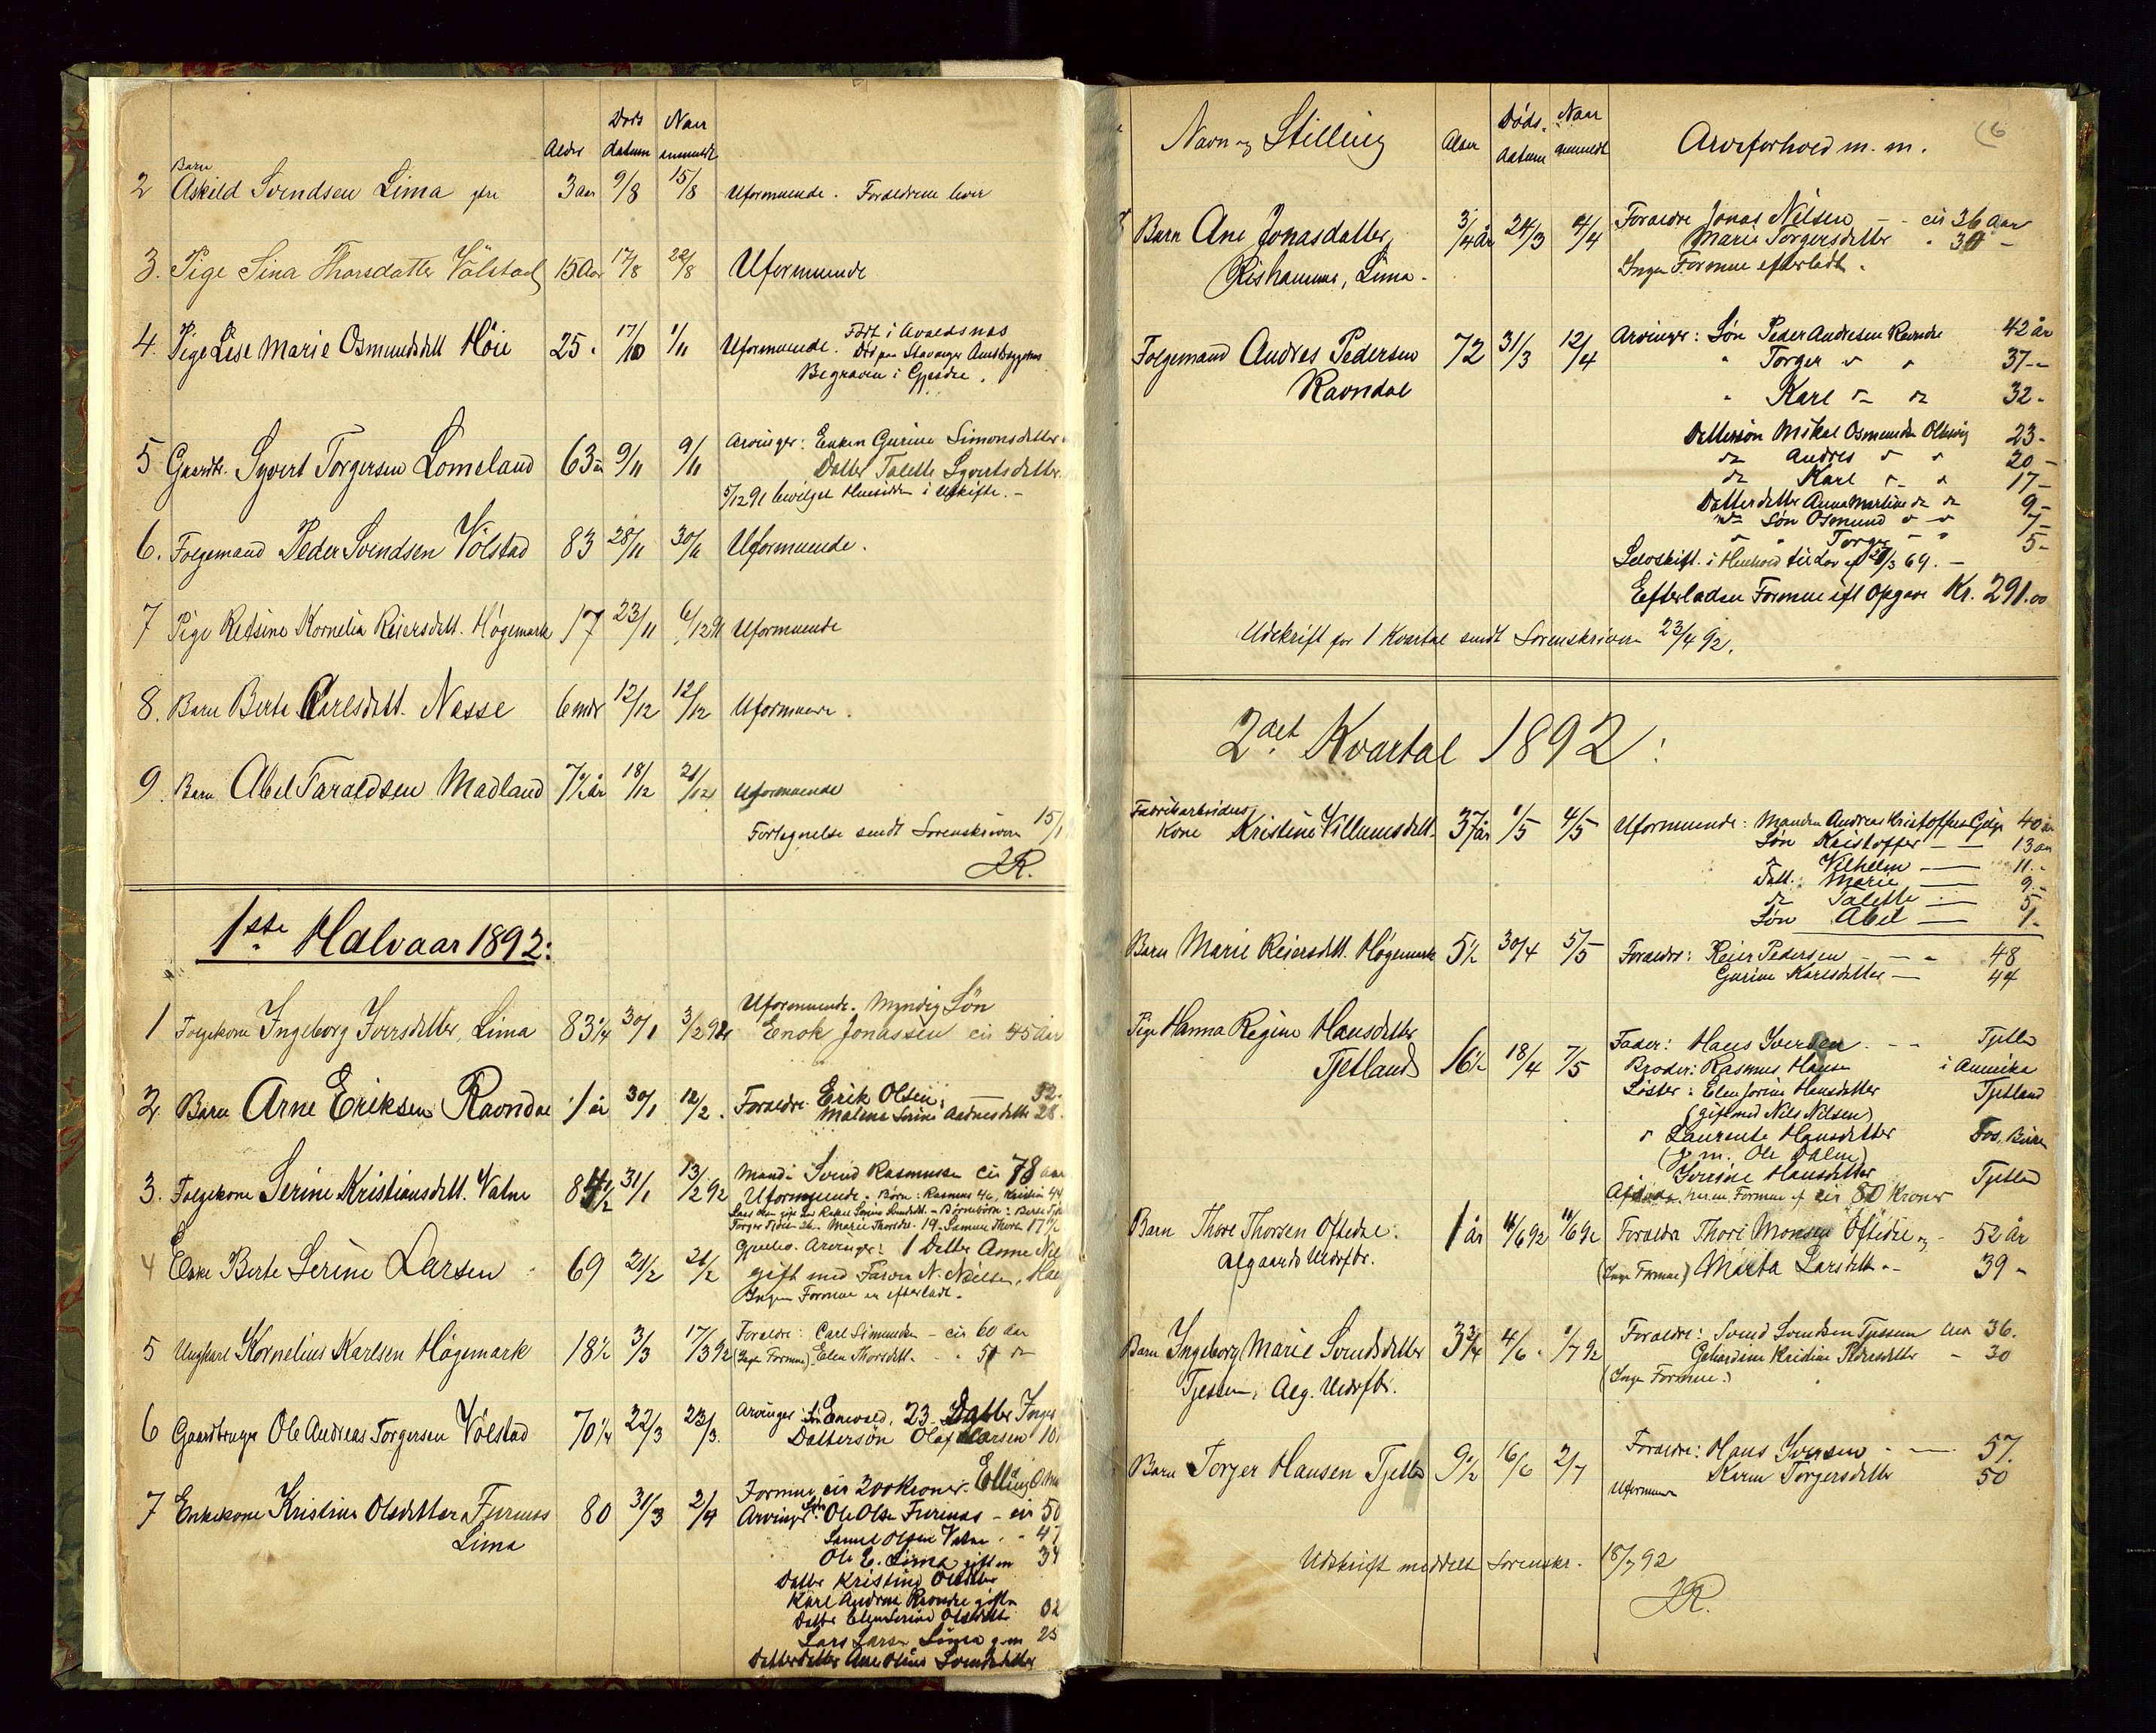 Alder Døds datum Naar anmeldt
2 Barn Askild Svendsen Lima 3 aar 9/8 15/8 Uformuende. Foraeldrene lever
3. Pige Sina Thorsdatter Völstad 15 Aar 17/8 22/8 Uformuende
4. Pige Lise Marie Osmundsdatt Höie 25. 17/10 1/11 Uformuende. Födt i Avaldsnas
Död paa Stavanger Amtssygehus
Begraven i Gjesdal.
5 Gaardbr. Syvert Torgersen Lomeland 63 9/11 9/11 Arvinger: Enken Gurine Simonsdatter
Datter Talette Syvertsdatter
5/12 91 bevilget Hensidden i Uskifte. -
6. Folgemand Peder Svendsen Völstad 83 28/11 30/11 Uformuende.
7 Pige Retsine Kornelia Reiersdatt. Högemark 17 23/11 6/12 91 Uformuende
8. Barn Berte Karlsdatt. Nesse 6 mdr 12/12 12/12 Uformuende.
9. Barn Abel Taraldsen Madland 7 1/2 år 18/12 21/12 Uformuende
Fortegnelse sendt Sorenskriveren 15/1
JR.
1ste Halvaar 1892:
1 Folgekone Ingeborg Iversdatter, Lima 83 1/4 30/1 3/2 92 Uformuende. Myndig Sön
Enok Jonassen cir 45 Aar
2. Barn Arne Eriksen Ravndal 1 år 30/1 12/2. Foraeldre Erik Olsen: 32.
Malene Serine Aadnesdatter 28.
3. Folgekone Serine Kristiansdatt. Valne 84 1/2 31/1 13/2 92 Mand: Svend Rasmussen cir 78 aar
Uformuende. Börn: Rasmus 46, Kristian 44
4 Enke Berte Serine Larsen 69 21/2 21/2 Arvinger: 1 Datter Anne
gift med Farver N. Nielsen,
Ingen Formue er efterladt.
5 Ungkarl Kornelius Karlsen Högemark 18 1/2 3/3 17/3 92 Foraeldre: Carl Simundsen - cir 60 Aar
(Inge Formue) Elen Thorsdatt. - 51 do
6 Gaardbruger Ole Andreas Torgersen Völstad 70 1/4 22/3 23/3. Arvinger: Sön Enevald, 23 Datter Inger
Dattersön Olaf Larsen 10
7 Enkekone Kristine Olsdatter Furenes 80 31/3 2/4 Formue cir 200 Kroner. Elling
Lima
Arvinger: Sön Ole Olsen Furenes - cir 50
Samuel Olsen Valne - 47
Ole E. Lima gift m 34
Datter Kristine Olsdatter
Karl Andreas Ravndal gift m
Datter Elen Serine Olsdatter 32
Lars Larsen Lima g.m 25
Datterdatter Ane Oline Svendsdatter
Navn og Stilling Alder Døds- datum Naar anmeldt Arveforhold m. m. 6
Barn Ane Jonasdatter, 3/4 år 24/3 4/4 Foraeldre Jonas Nilsen - - cir 36 Aar
Marie Torgersdatter " 34 -
Rishammer, Lima. Ingen Formue efterladt.
Folgemand Andres Pedersen 72 31/3 12/4 Arvinger: Søn Peder Andresen Ravndal 42 år
Ravndal
Torger 37 -
Karl 32 -
Dattersön Mikal Osmundsen Oltesvig 23 -
do Andres 20 -
do Karl 17 -
Datterdatter Anna Martine do do 9 -
Søn Osmund 7 -
Torger 5 -
Selvskift. i Henhold til Lov af 20/3 69. -
Efterladen Formue eft Opgave Kr. 291.00
Udskrift for 1 Kvartal sendt Sorenskriveren 23/4 92.
2det Kvartal 1892:
Fabrikarbeiders
Kone Kristine Villumsdatt. 37 år 1/5 4/5 Uformuende: Manden Andreas Kristoffersen 40 år
Søn Kristoffer - 13 aar
do Vilhelm - 11 -
Datt. Marie - 9 -
do Talette - 5
Søn Abel - 1 -
Barn Marie Reiersdatt. Høgemark 5 1/2 30/4 5/5 Foraeldre: Reier Pedersen - - - 48
Gurine Karlsdatter - 44
Pige Hanna Regine Hansdatter
Tjetland 16 1/2 18/4 7/5 Fader: Hans Iversen - - Tjetland
Broder: Rasmus Hansen i Amerika
Søster: Elen Jorine Hansdatter Tjetland
(gift med Nils Nilsen)
" Laurentse Hansdatter Fos, Birkr
(g. m. Ole Dalen)
Hansdatter Tjetland
Formue af cir 80 Kroner
Barn Thore Thorsen Oftedal: 1 år 11/6 92 11/6 92 Foraeldre Thore Monsen Oftedal og - 52 år
Aalgaards Uldvfbr. (Inge Formue) Marta Larsdatt - - 39 -
Barn Ingeborg Marie Svendsdatter 3 3/4 4/6. 1/7 92 Foraeldre: Svend Svendsen Tjessem Aar 36.
Gehardine Kristine Pedersdatter - 30
Tjessem, Aalg. Uldvfbr. (Inge Formue.)
Barn Torger Hansen Tjetland 9 1/2 16/6 2/7 Foraeldre: Hans Iversen - - 57.
Karen Torgersdatter 50
Uformuen
Udskrift meddelt Sorenskr. 18/7 92
JR.